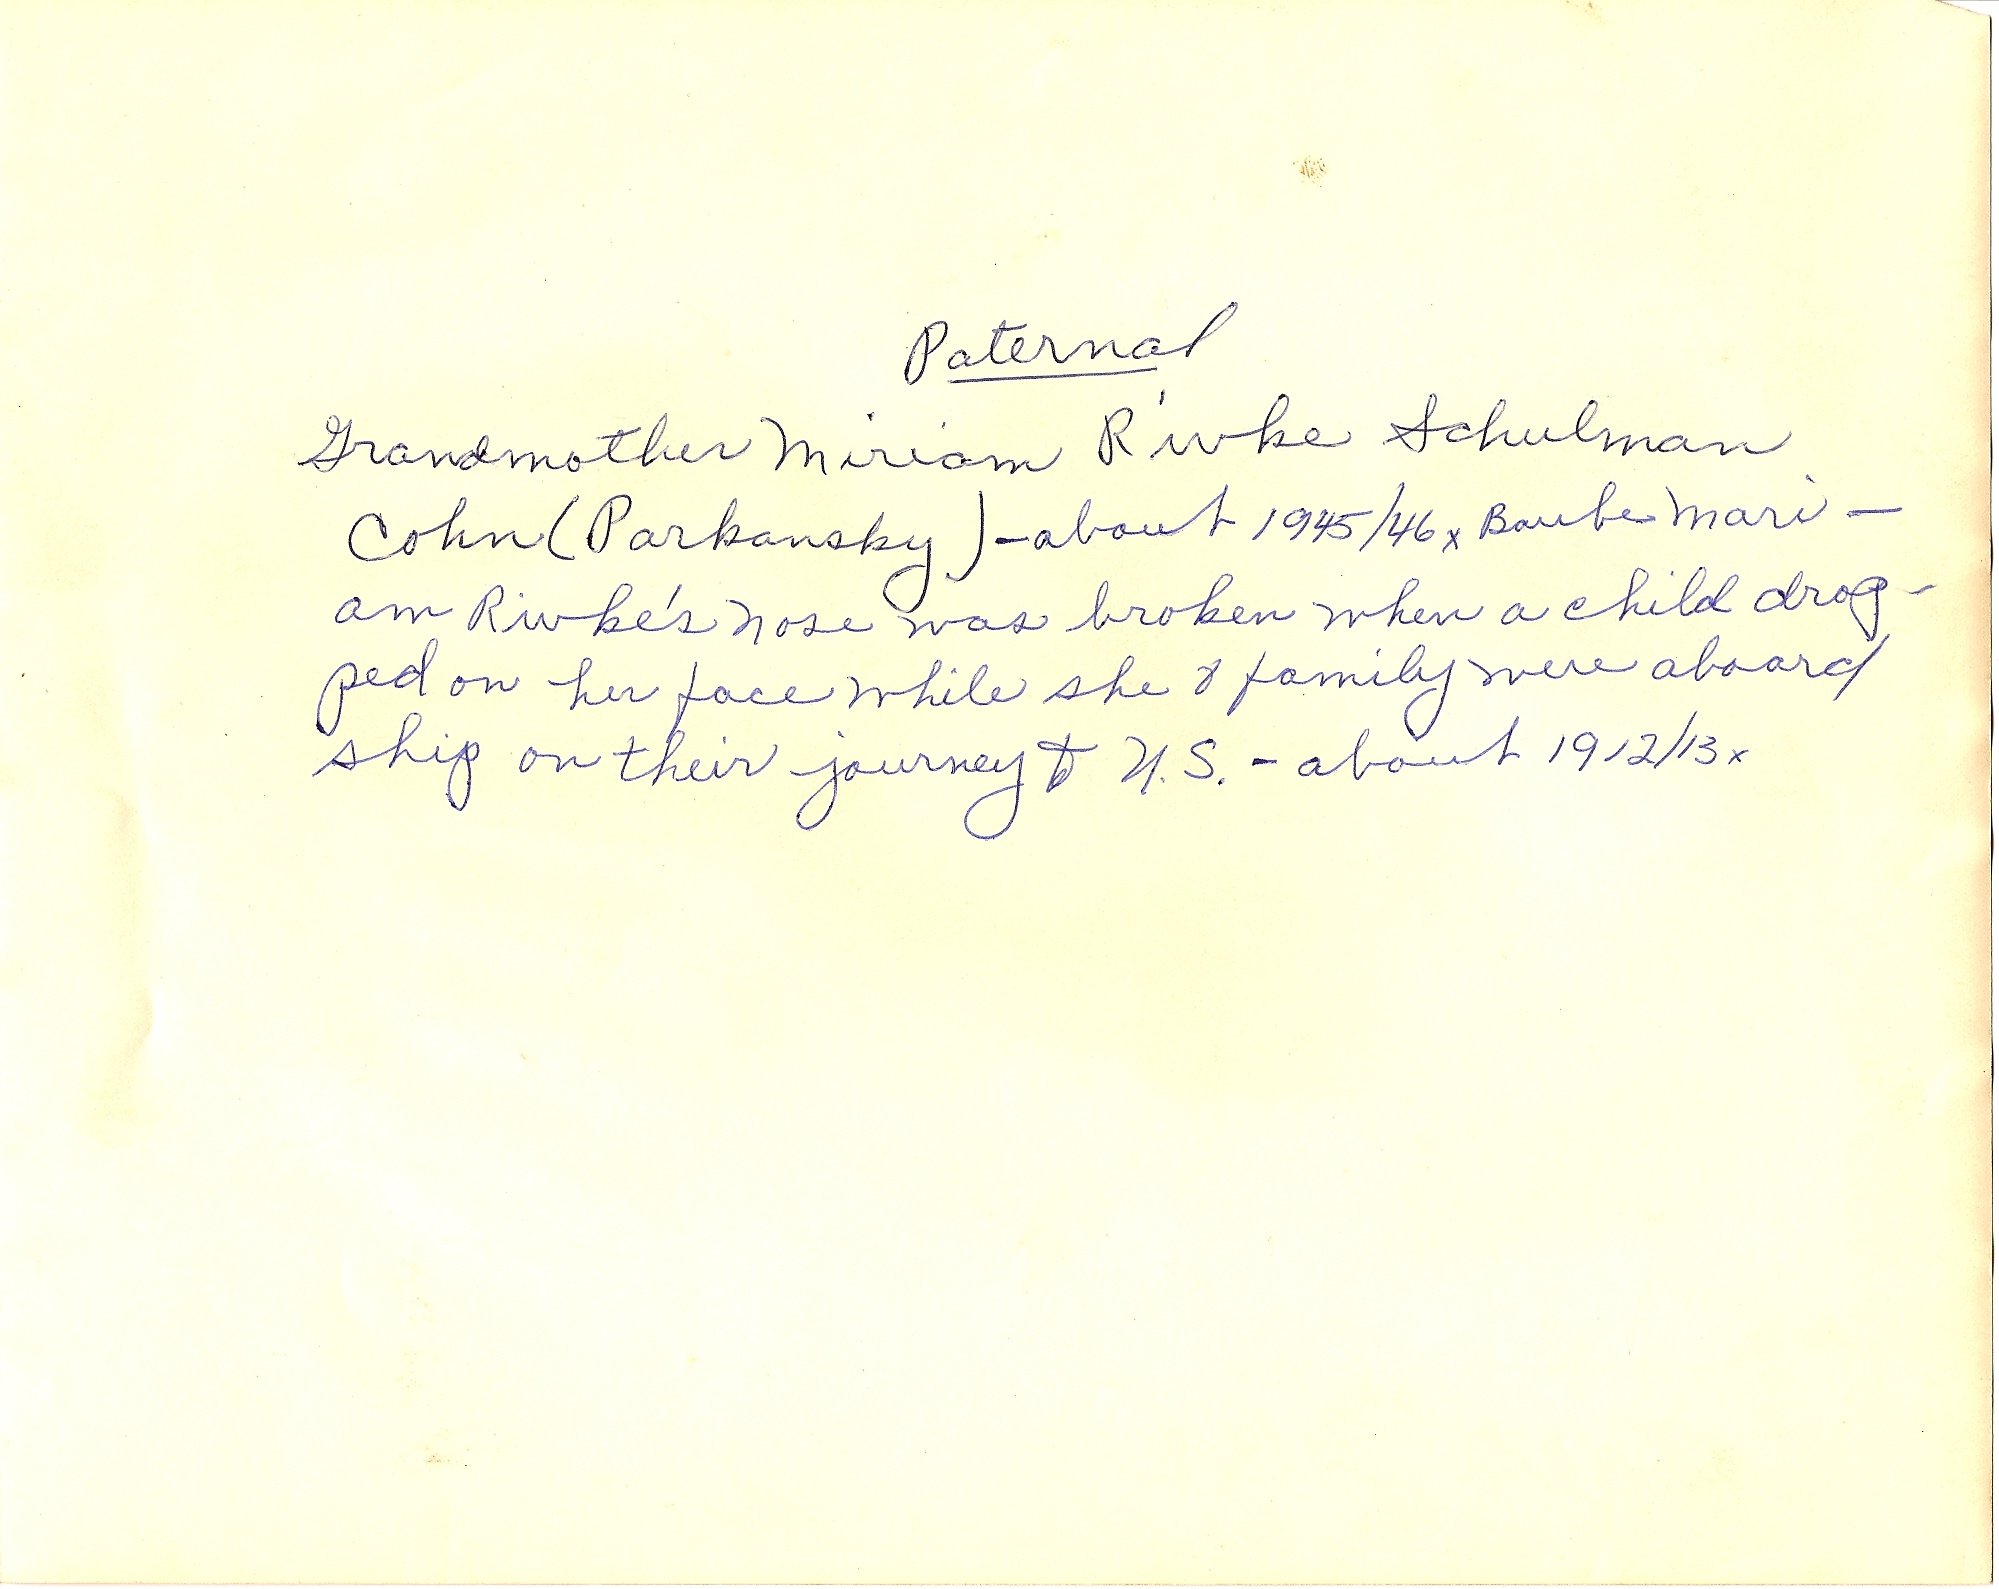 Paternal
Grandmother Miriam Rivke Schulman
Cohn (Parkansky) - about 1945/46x Baube Mari -
am Rivke's nose was broken when a child drop-
ped on her face while she & family were aboard
ship on their journey to U.S. - about 1912/13x